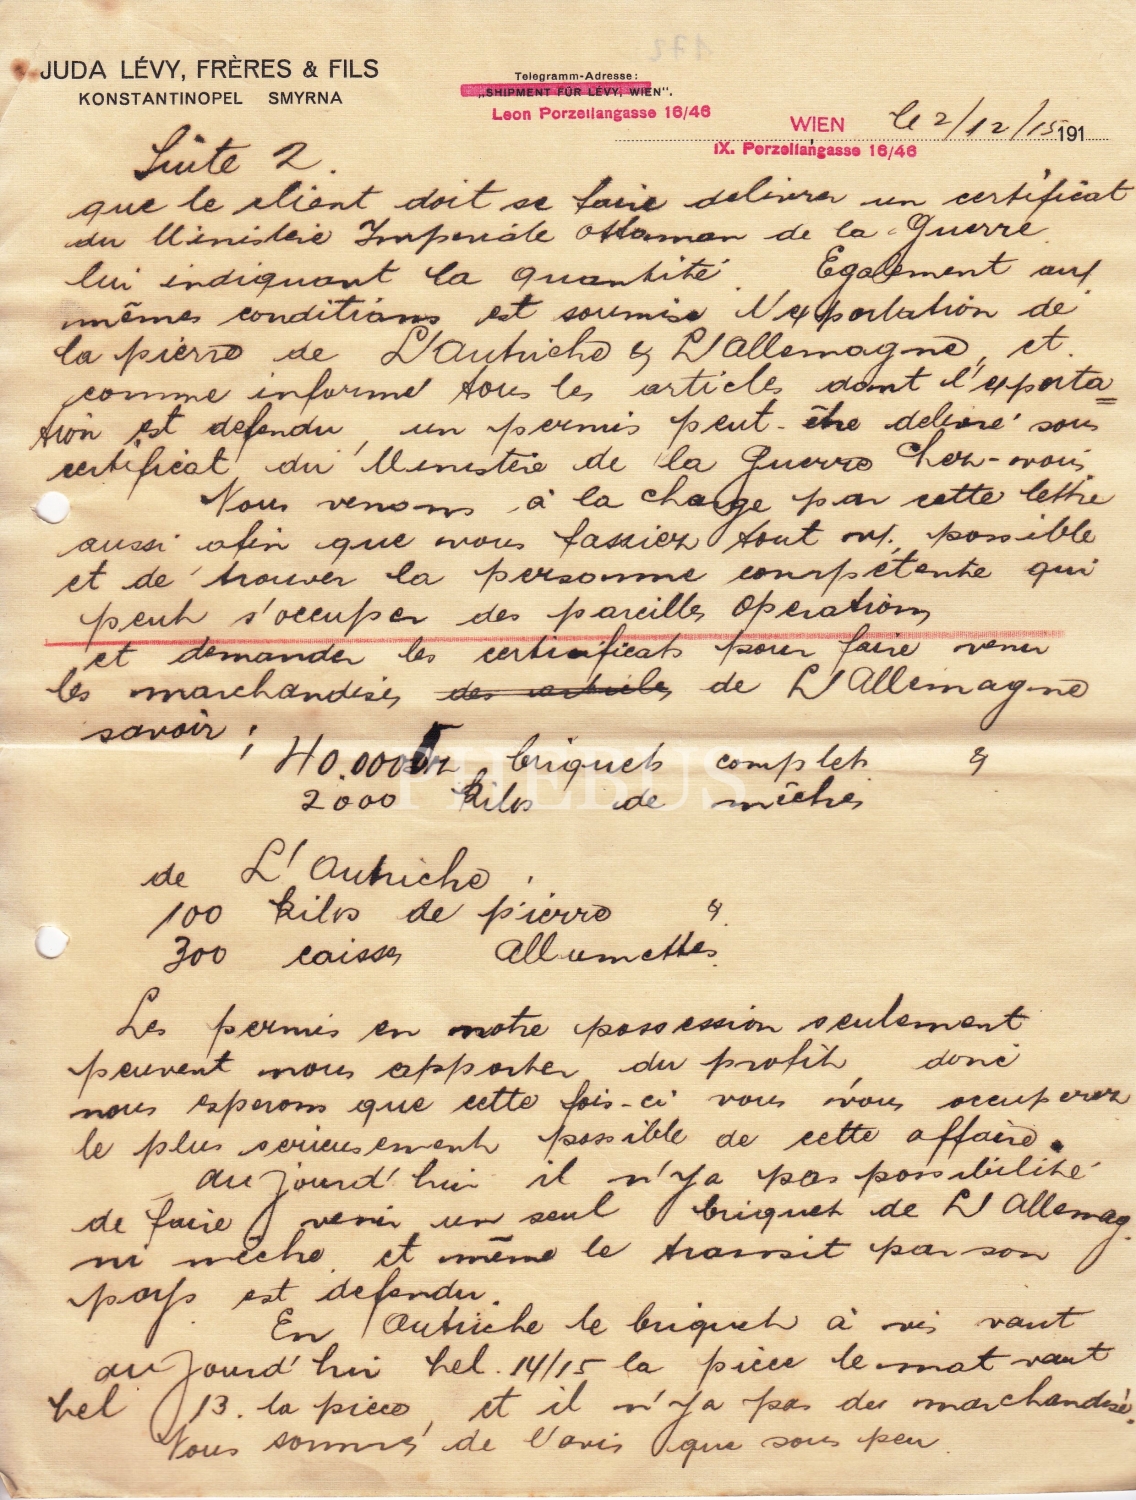 172
JUDA LÉVY, FRÈRES & FILS
KONSTANTINOPEL SMYRNA
Telegramm-Adresse:
„SHIPMENT FÜR LÉVY, WIEN".
Leon Porzellangasse 16/46
WIEN le 2/12/15 191
IX. Porzellangasse 16/46
Suite 2.
que le client doit se faire delivrer un certificat
du Ministeie Imperiale Ottoman de la Guerre
lui indiquant la quantité. Egalement aux
mêmes conditions est soumise l'exportation de
la pierre de L'Autriche & L'Allemagne, et.
comme informé tous les articles dont l'exporta=
tion est defendu, un permis peut-être delivré sous
certificat du Ministère de la Guerre Chez-vous.
Nous venons à la charge par cette lettre
aussi afin que vous fassiez tout v/. possible
et de trouver la personne compétente qui
peut s'occuper des pareilles Operations
et demander les certificats pour faire venir
les marchandises des articles de L'Allemagne
savoir;
40.000 Dz briquets complets &
2000 kilos de mêches
de L'Autriche,
100 kilos de pierre &
300 caisses Allumettes.
Les permis en notre possession seulement
peuvent nous apporter du profit, donc
nous esperons que cette fois-ci vous vous occuperez
le plus serieusement possible de cette affaire.
aujourd'hui il n'ya pas possibilité
de faire venir un seul briquet de L'Allemag.
ni mêche, et même le transit par son
pays est defendu.
En Autriche le briquet à vis vaut
aujourd'hui hel. 14/15 la piece le mat vaut
hel 13. la piece, et il n'ya pas des marchandise.
Nous sommes de l'avis que sous peu
PHEBUS